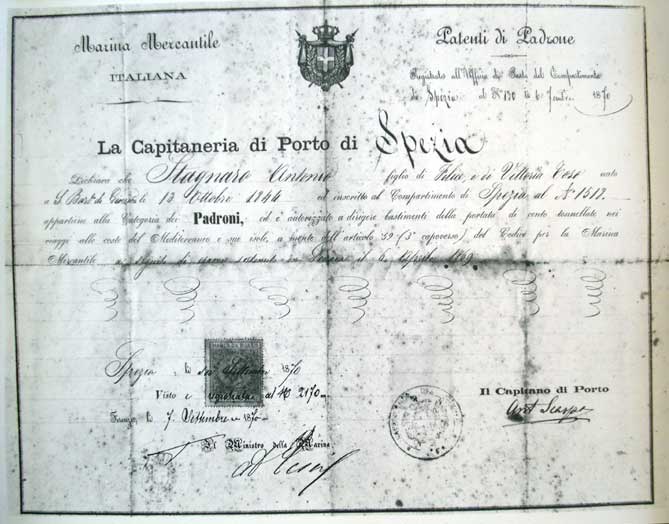 Marina Mercantile
ITALIANA
Patenti di Padrone
Registrato all'Ufficio di Porto del Compartimento
di Spezia al N° 130 1870
La Capitaneria di Porto di Spezia
Dichiara che Stagnaro Antonio figlio di Felice e di Vittoria nato
a S. li 13 Ottobre 1844 ed inscritto al Compartimento di Spezia al N° 1512.
appartiene alla Categoria dei Padroni, ed è autorizzato a dirigere bastimenti della portata di cento tonnellate nei
viaggi alle coste del Mediterraneo e sue isole, a mente dell'articolo 59 (3° capoverso) del Codice per la Marina
Mercantile a seguito di esame sostenuto in il Aprile 1869
Spezia, li Settembre 1870
Visto e registrato al N° 2170
Firenze, li 7. Settembre 1870
Il Capitano di Porto
Il Ministro della Marina